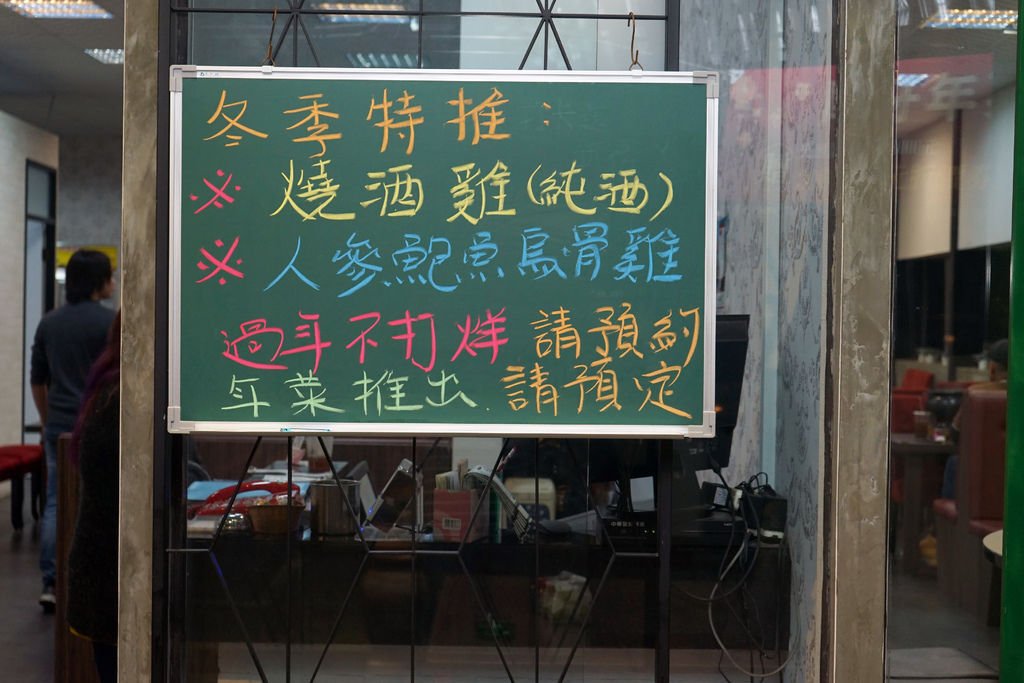 冬季特推：
※ 燒酒雞(純酒)
※ 人參鮑魚烏骨雞
過年不打烊 請預約
年菜推出 請預定